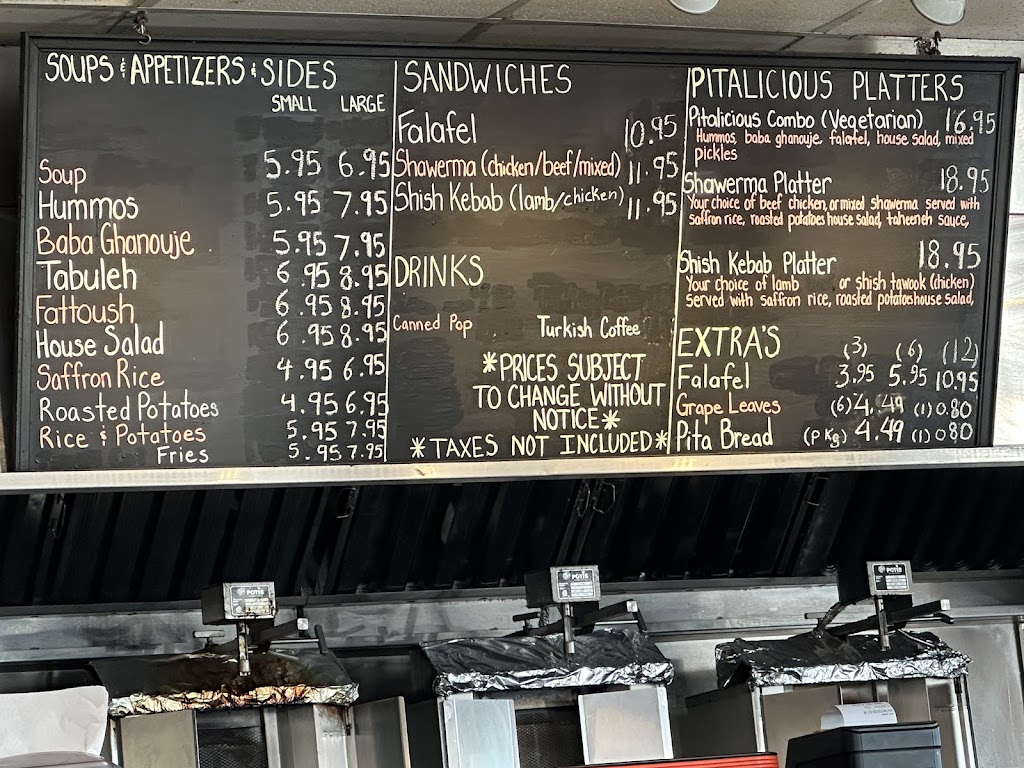 SOUPS & APPETIZERS & SIDES
SMALL LARGE
Soup 5.95 6.95
Hummos 5.95 7.95
Baba Ghanouje 5.95 7.95
Tabuleh 6.95 8.95
Fattoush 6.95 8.95
House Salad 6.95 8.95
Saffron Rice 4.95 6.95
Roasted Potatoes 4.95 6.95
Rice & Potatoes 5.95 7.95
Fries 5.95 7.95
SANDWICHES
Falafel 10.95
Shawerma (chicken/beef/mixed) 11.95
Shish Kebab (lamb/chicken) 11.95
DRINKS
Canned Pop Turkish Coffee
*PRICES SUBJECT
TO CHANGE WITHOUT
NOTICE*
*TAXES NOT INCLUDED*
PITALICIOUS PLATTERS
Pitalicious Combo (Vegetarian) 16.95
Hummos, baba ghanouje, falafel, house salad, mixed
pickles
Shawerma Platter 18.95
Your choice of beef chicken, or mixed shawerma served with
saffron rice, roasted potatoes house salad, taheeneh sauce,
Shish Kebab Platter 18.95
Your choice of lamb or shish tawook (chicken)
served with saffron rice, roasted potatoes house salad,
EXTRA'S (3) (6) (12)
Falafel 3.95 5.95 10.95
Grape Leaves (6) 4.49 (1) 0.80
Pita Bread (PKg) 4.49 (1) 0.80
POTIS
POTIS
POTIS